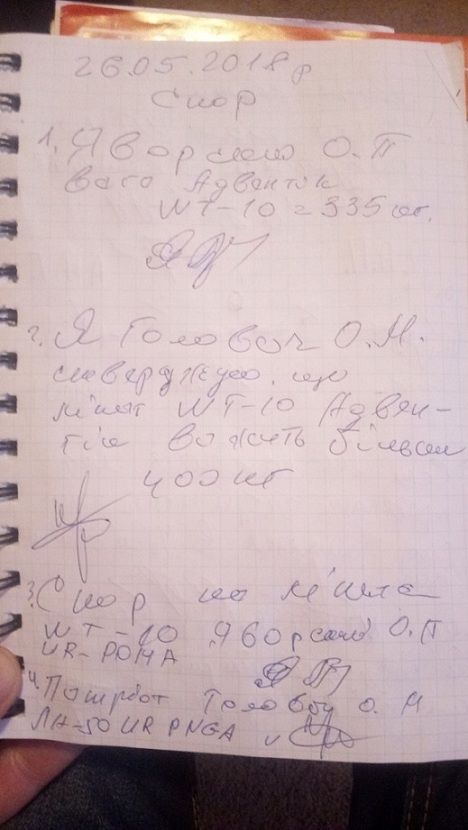 26.05.2018р
Спор
1. Яворський О.П
вага Адвентик
WT-10 = 335 кг.
2. Я Головач О.М.
стверджую, що
літак WT-10 Адвен-
тік важить більше
400 кг
3. Спор на літак
WT-10 Яворський О.П
UR-POMA
4. Головач О. М
UR PNGA